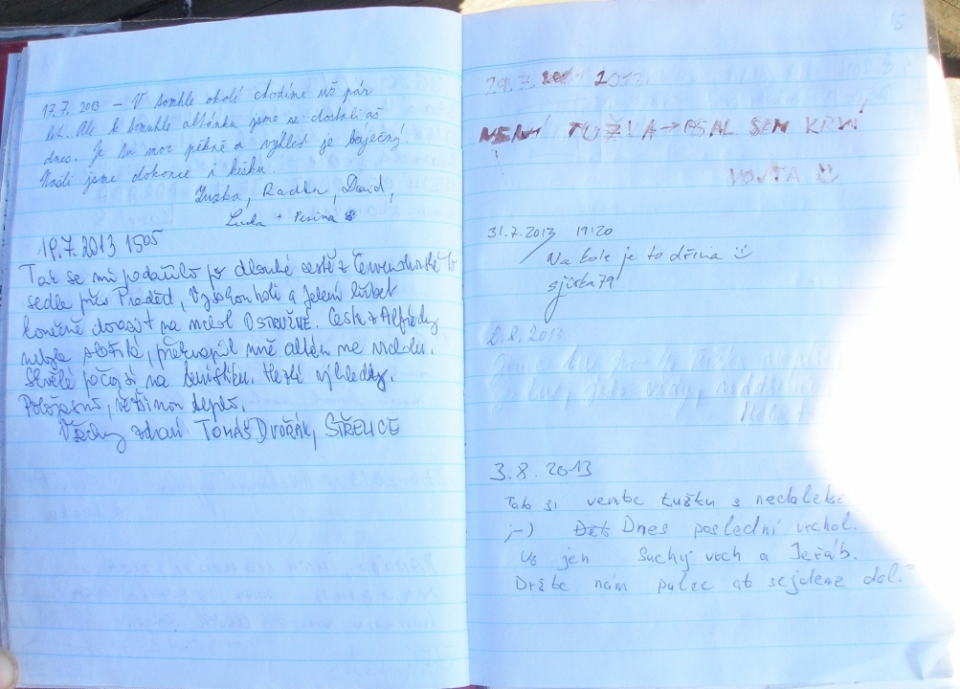 17.7. 2013 – V tomhle okolí chodíme už pár
let. Ale k tomuhle altánku jsme se dostali až
dnes. Je tu moc pěkně a výhled je báječný!
Našli jsme dokonce i kešku.
Zuzka, Radka, David,
Luda +
19.7. 2013 1505
Tak se mi podařilo po dlouhé cestě z Červenohorského
sedla přes Praděd, Vysokou holi a Jelení hřbet
konečně dorazit na vrchol OSTRUŽNÉ. Cesta z Alfrédky
nebyla složitá, překvapil mně altán na vrcholu.
Skvělé počasí na turistiku. Hezké výhledky.
Polojasno, většinou teplo.
Všechny zdraví TOMÁŠ DVOŘÁK, STŘELICE
15
29.7. 2013
NENÍ TUŽKA → PSAL SEM KRVÍ!
VOJTA
31.7.2013 19:20
Na kole je to dřina
sjirka79
2.8.2013
3.8.2013
Tak si vemte tužku s nedaleké
;-) Dnes poslední vrchol.
Už jen Suchý vrch a Jeřáb.
Držte nám palce ať sejdeme dolů